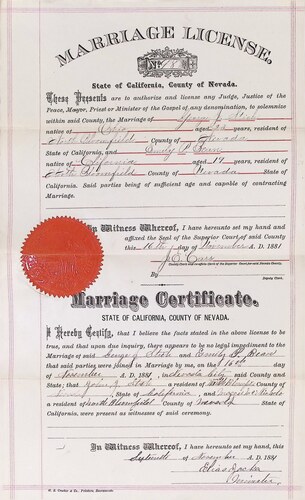 MARRIAGE LICENSE,
No. 18
State of California, County of Nevada.
These Presents are to authorize and license any Judge, Justice of the
Peace, Mayor, Priest or Minister of the Gospel of any denomination, to solemnize
within said County, the Marriage of George J.
native of Ohio aged years, resident of
North Bloomfield County of Nevada
State of California, and Emily
native of California aged 19 years, resident of
North Bloomfield County of Nevada
State of California. Said parties being of sufficient age and capable of contracting
Marriage.
In Witness Whereof, I have hereunto set my hand and
affixed the Seal of the Superior Court, of said County
this 16th day of November A. D. 1881
By
Deputy Clerk.
Marriage Certificate.
STATE OF CALIFORNIA, COUNTY OF NEVADA.
I Hereby Certify, that I believe the facts stated in the above license to be
true, and that upon due inquiry, there appears to be no legal impediment to the
Marriage of said George J. and Emily
that said parties were joined in Marriage by me, on the 16th
day of November A. D. 1881, in Nevada City said County and
State; that John J. a resident of
County, State of California, and
a resident of North Bloomfield County of Nevada State of
California, were present as witnesses of said ceremony.
In Witness Whereof, I have hereunto set my hand, this
Sixteenth November A. D. 1881
Minister